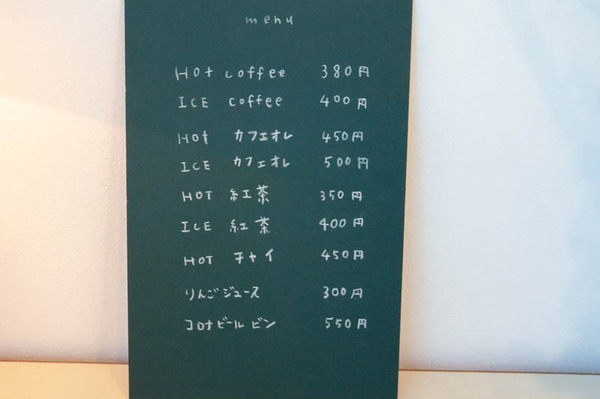 menu
HOt coffee 380円
ICE coffee 400円
HOt カフェオレ 450円
ICE カフェオレ 500円
HOT 紅茶 350円
ICE 紅茶 400円
HOT チャイ 450円
りんごジュース 300円
コロナビール ビン 550円